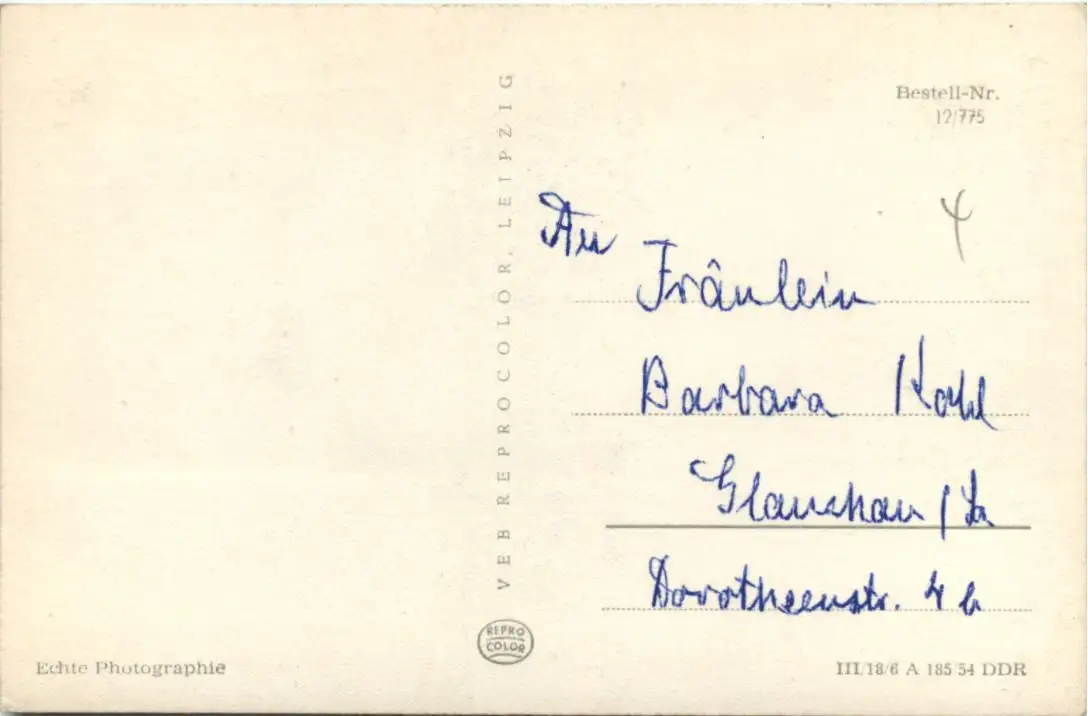 Bestell-Nr.
12/775
VEB REPROCOLOR, LEIPZIG
An
Fräulein
Barbara
Glauchau / Sa
Dorotheenstr. 4 b
REPRO
COLOR
Echte Photographie
III/18/6 A 185/54 DDR